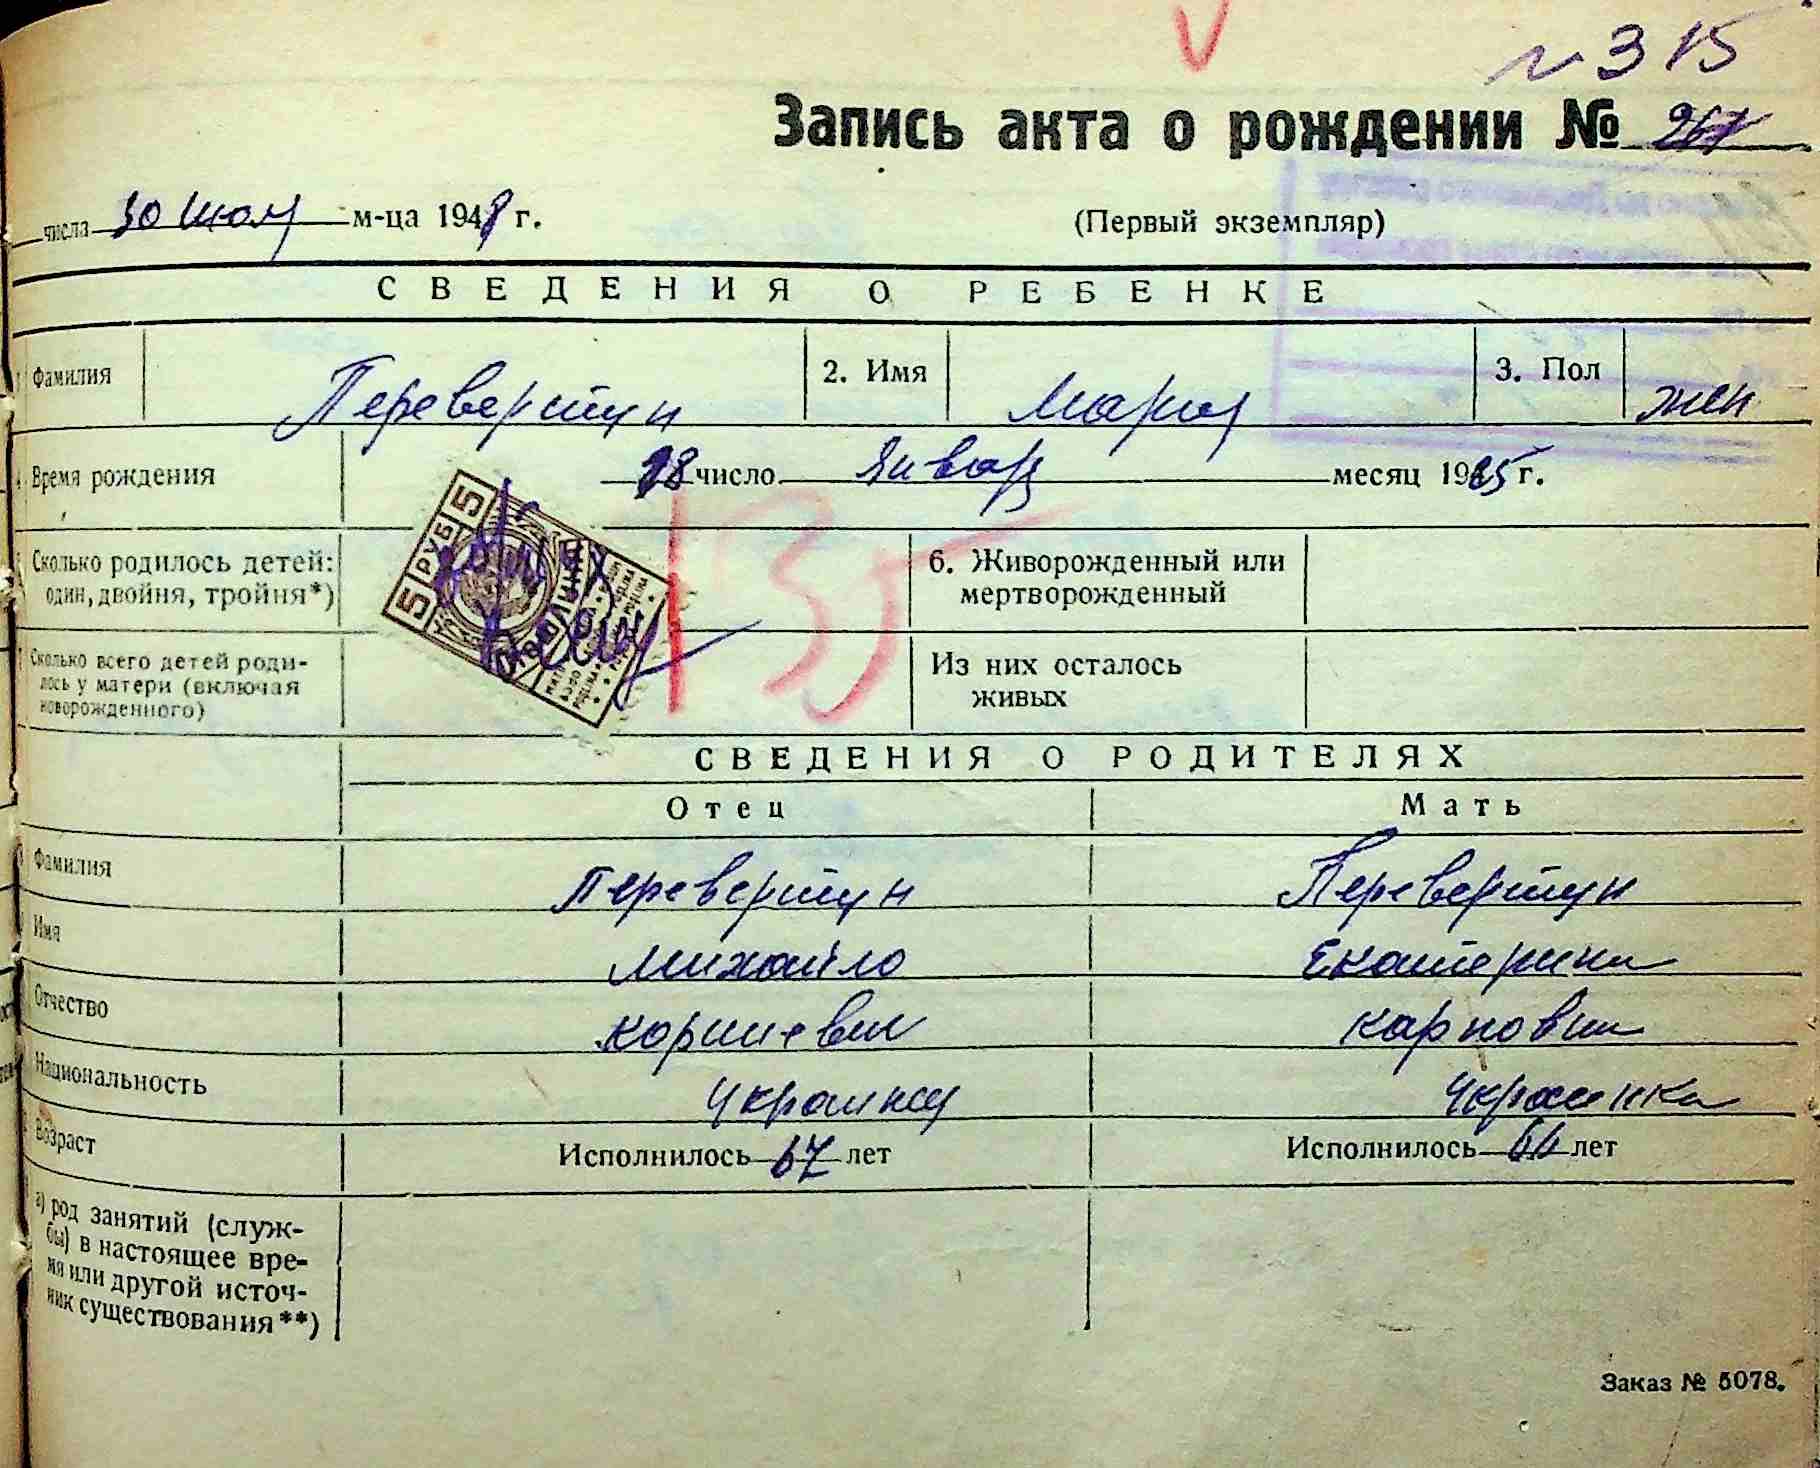 № 315
Запись акта о рождении №
числа 30 Июля м-ца 1948 г. (Первый экземпляр)
СВЕДЕНИЯ О РЕБЕНКЕ
Фамилия Перевертун 2. Имя Мария 3. Пол жен
Время рождения 18 число Январ месяц 1925 г.
Сколько родилось детей: один, двойня, тройня*) 6. Живорожденный или мертворожденный
5 РУБ 5
135
Сколько всего детей родилось у матери (включая новорожденного) Из них осталось живых
СВЕДЕНИЯ О РОДИТЕЛЯХ
Отец Мать
Фамилия Перевертун Перевертун
Имя Михайло Екатерина
Отчество Карповн
Национальность Украинец Украинка
Возраст Исполнилось 67 лет Исполнилось 66 лет
а) род занятий (служ-
бы) в настоящее вре-
мя или другой источ-
ник существования**)
Заказ № 5078.